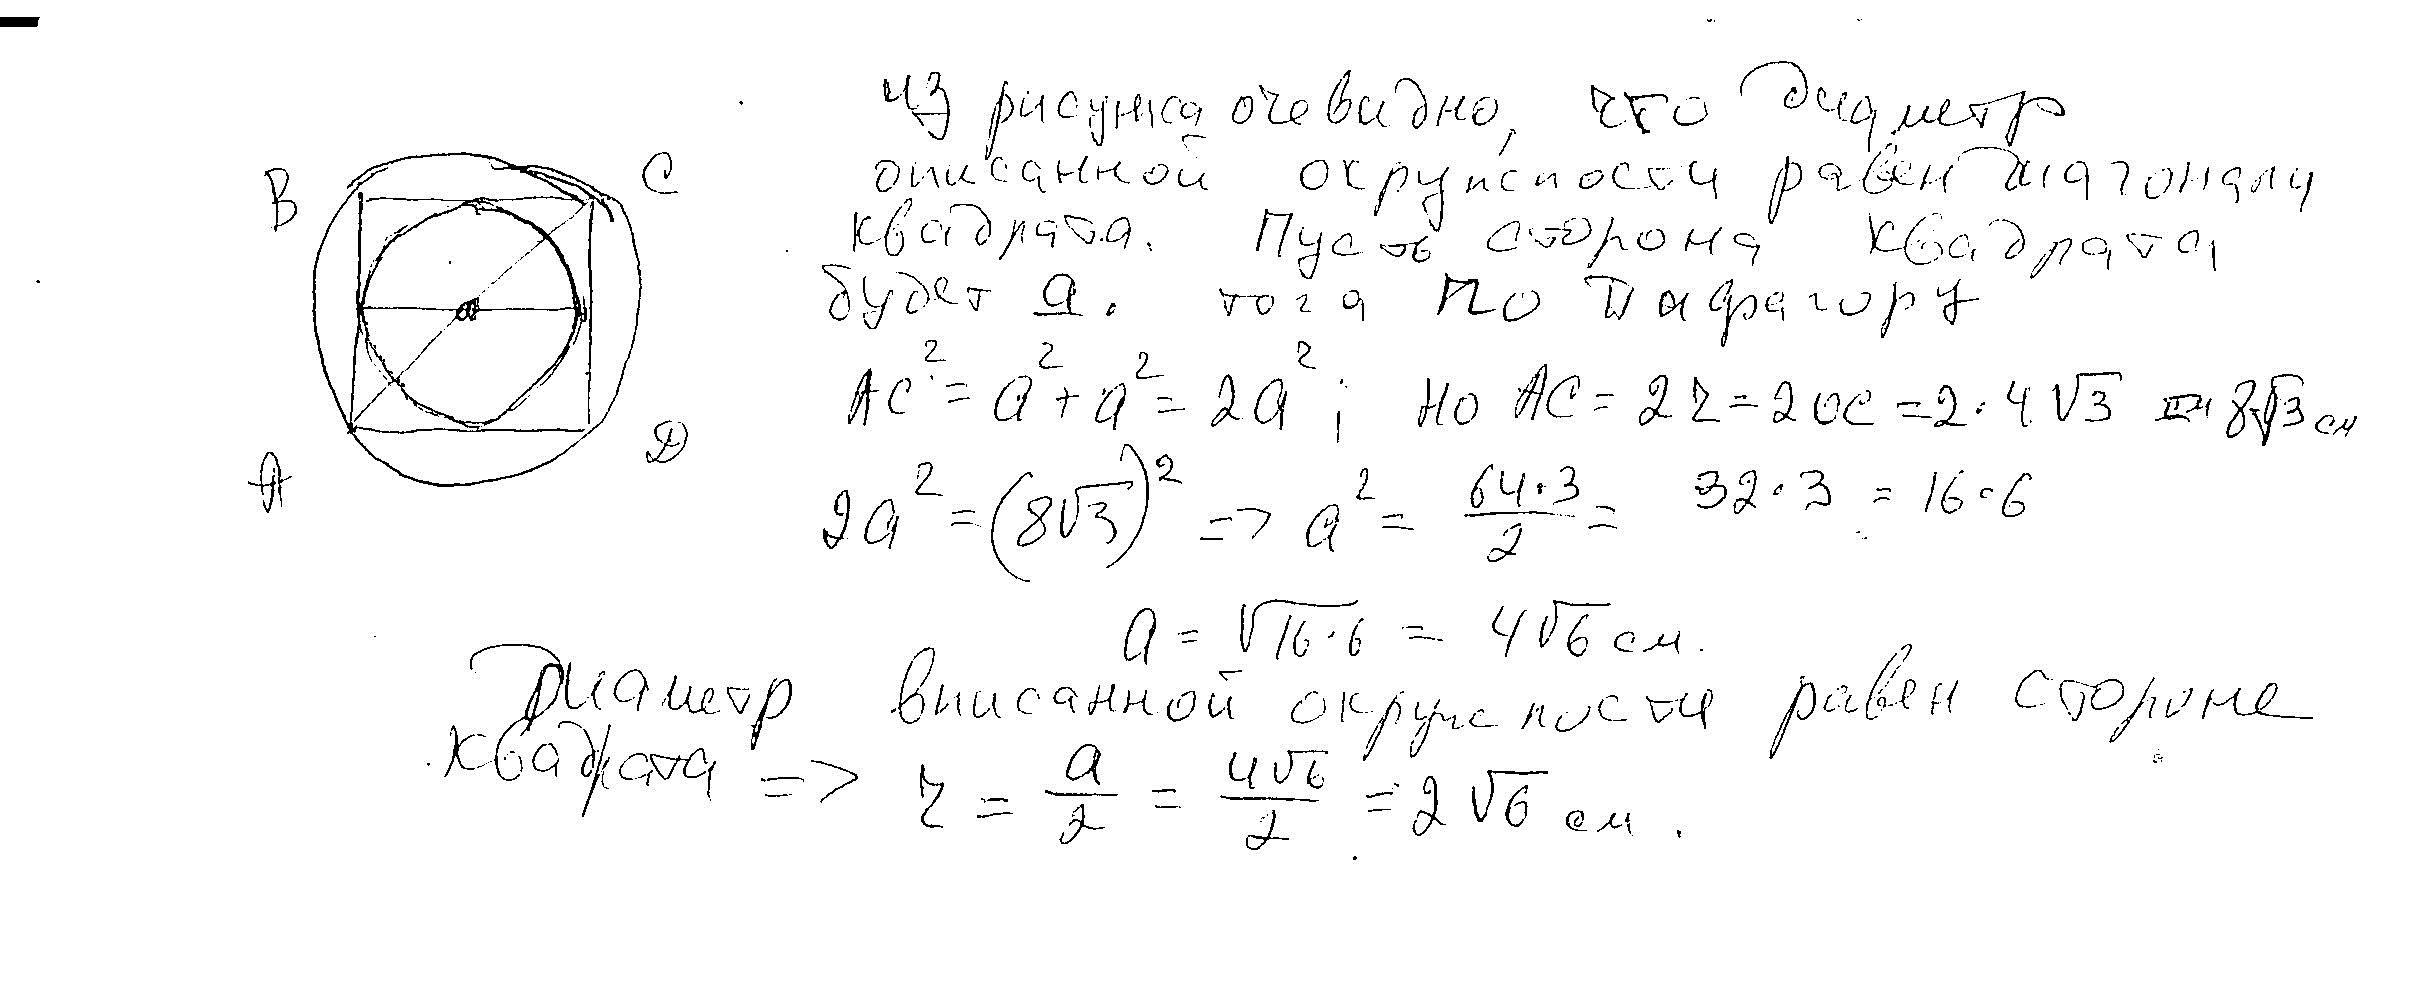 Из рисунка очевидно, что диаметр
описанной окружности равен диагонали
квадрата. Пусть сторона квадрата
будет a. тога по Пифагору
B C
A D
AC² = a² + a² = 2a² ; но AC = 2r = 2OC = 2·4√3 = 8√3 см
2a² = (8√3)² => a² = 64·3/2 = 32·3 = 16·6
a = √16·6 = 4√6 см.
Диаметр вписанной окружности равен стороне
квадрата => r = a/2 = 4√6/2 = 2√6 см.